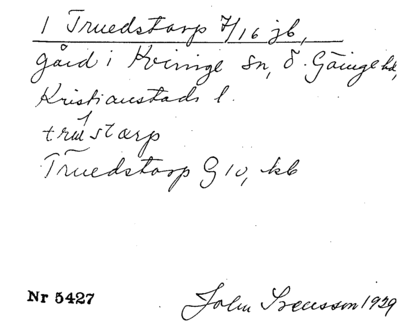 1 Truedstorp 7/16 jb,
gård i Kvinge Sn, Ö. Gäinge hd,
Kristianstads l.
trustarp
Truedstorp G 10, kb
Nr 5427
John Svensson 1929